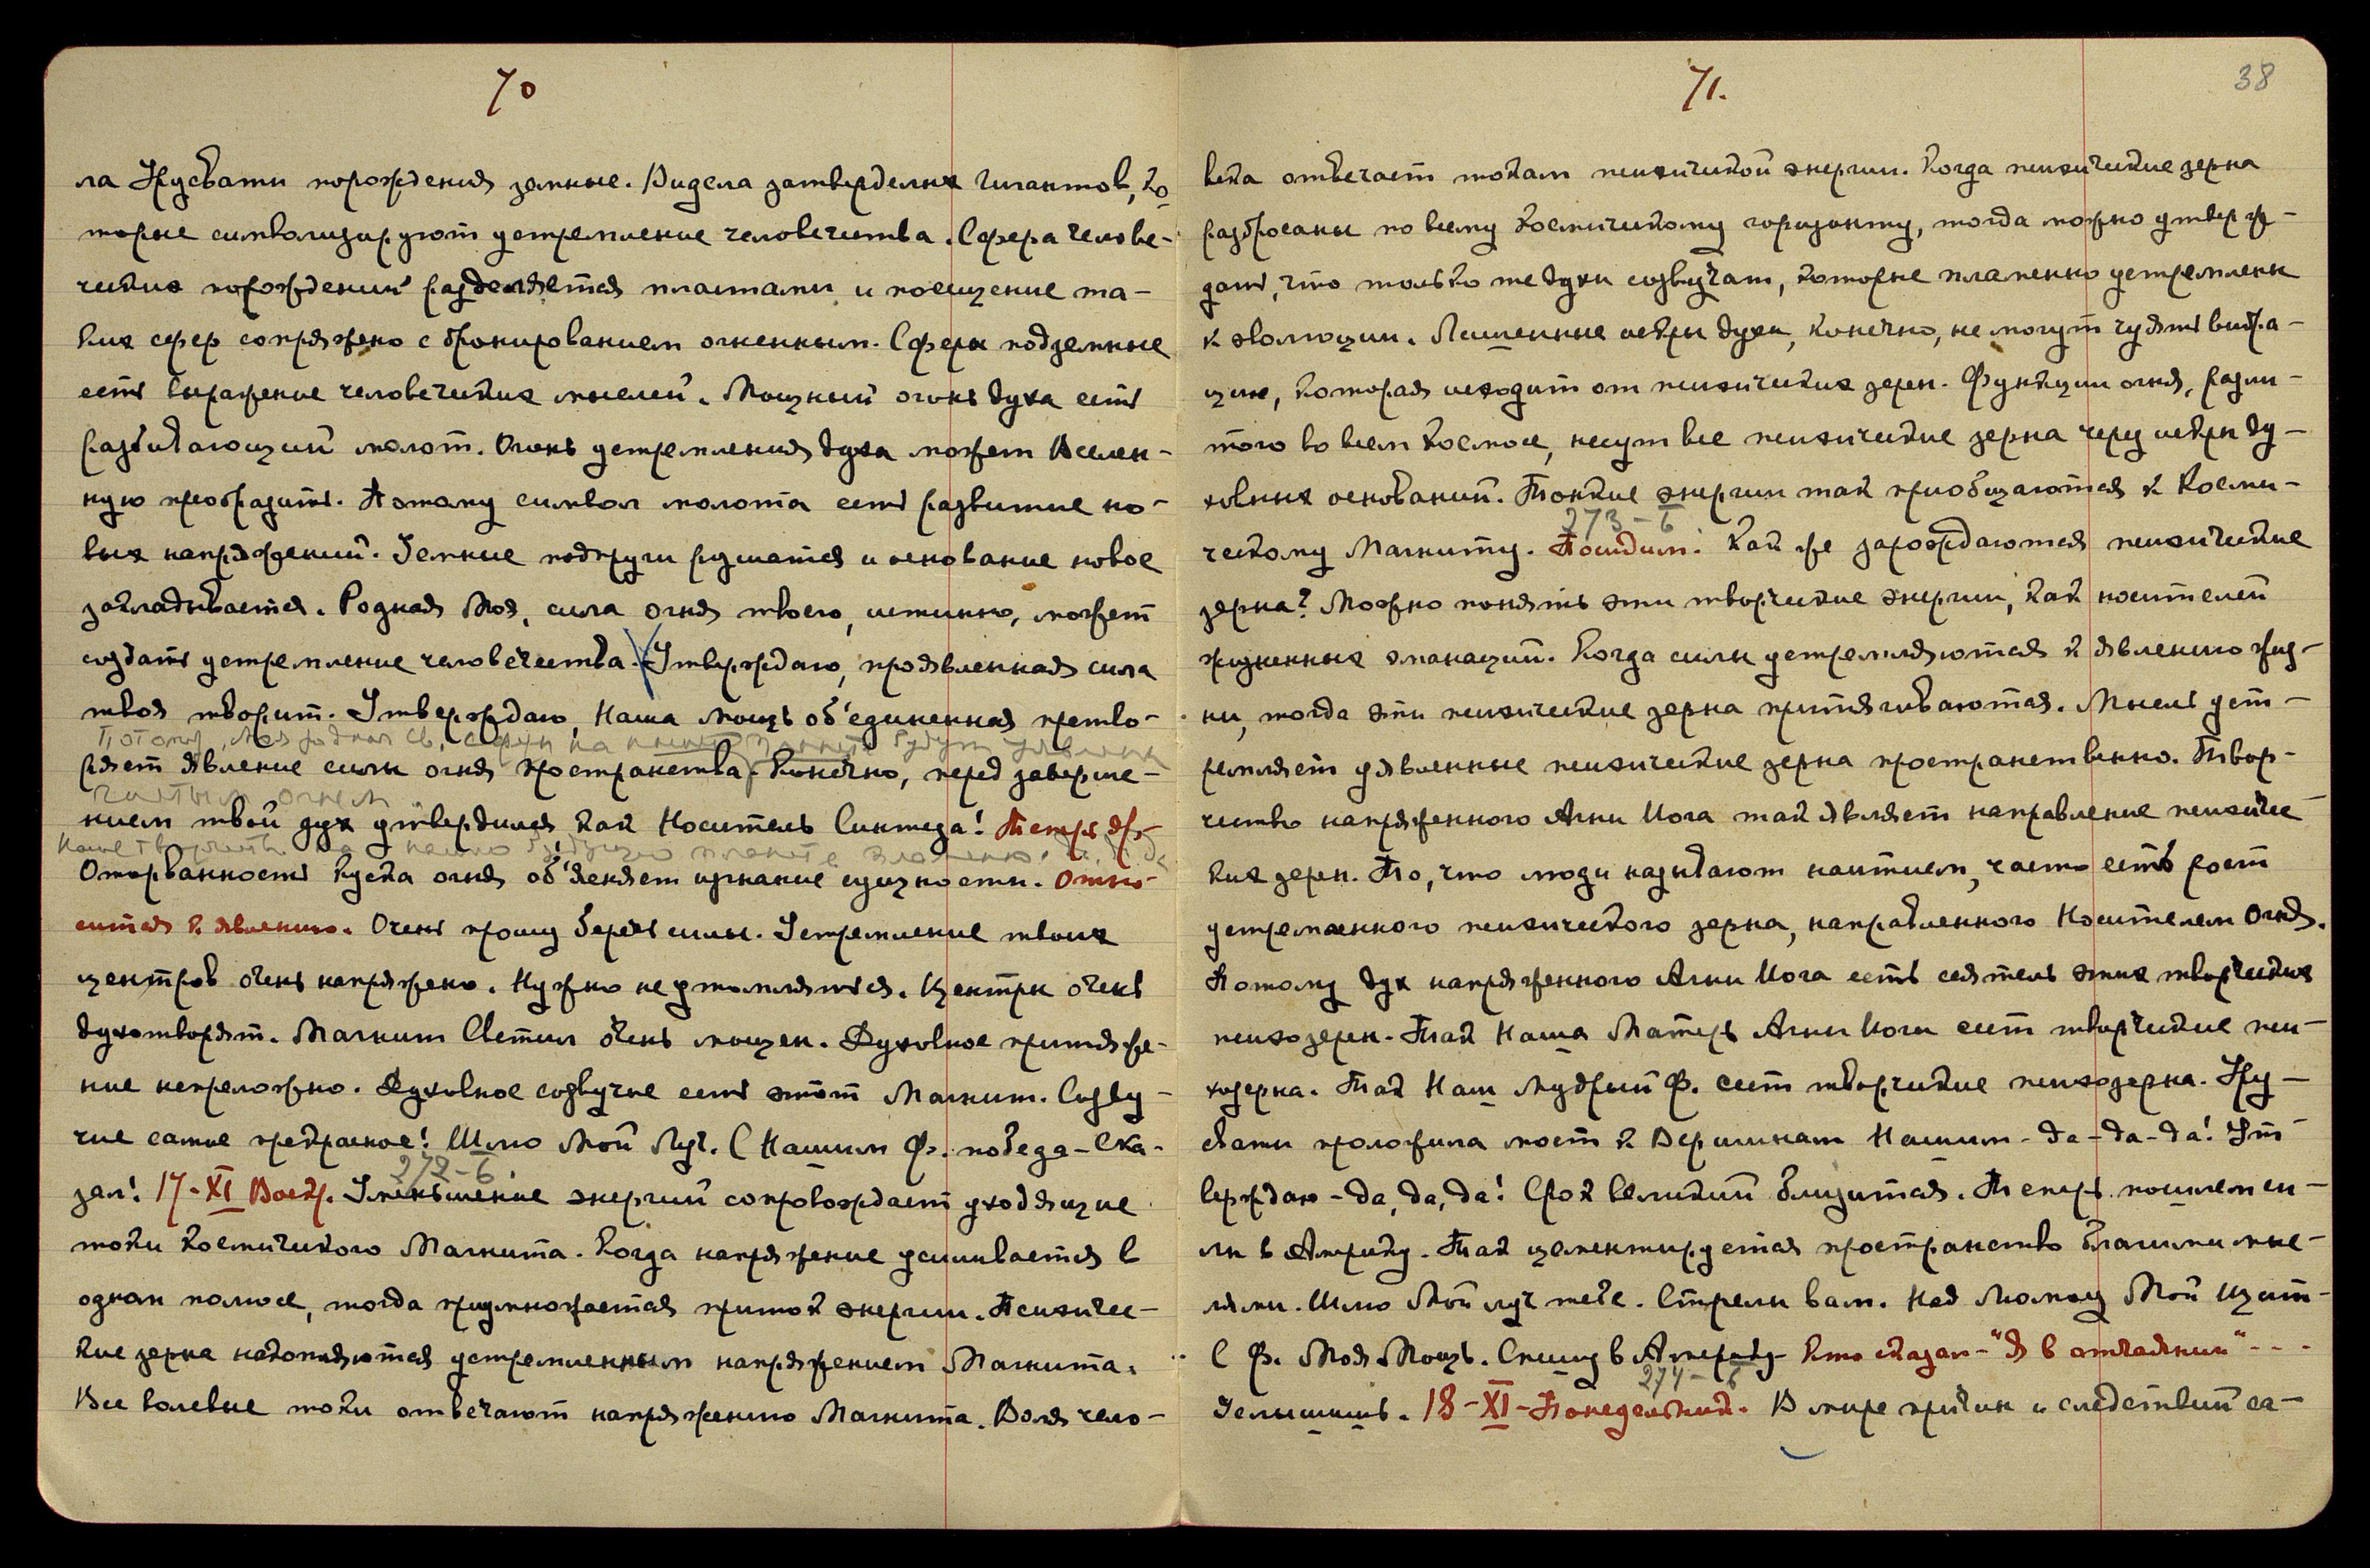 70
ла Урусвати порождения земные. Видела затверделых гигантов, ко-
торые символизируют устремление человечества. Сфера челове-
ческих порождений разделяется пластами и посещение та-
ких сфер сопряжено с бронированием огненным. Сферы подземные
есть выражение человеческих мыслей. Мощный огонь духа есть
разбивающий молот. Огонь устремления духа может Вселен-
ную преобразить. Потому символ молота есть развитие но-
вых напряжений. Земные подпруги рушатся и основание новое
закладывается. Родная Моя, сила огня твоего, истинно, может
создать устремление человечества. Утверждаю, проявленная сила
твоя творит. Утверждаю, Наша мощь об'единенная претво-
Потому, Моя родная Св, сферы на
ряет явление силы огня пространства. Конечно, перед заверше-
чистым огнем
нием твой дух утвердился как Носитель Синтеза! Теперь
Наше творчество на
Оторванность куска огня об'ясняет изгнание сущности. Отно-
сится к явлению. Очень прошу беречь силы. Устремление твоих
центров очень напряжено. Нужно не утомляться. Центры очень
духотворят. Магнит Светил очень мощен. Духовное притяже-
ние непреложно. Духовное созвучие есть этот Магнит. Созву-
чие самое прекрасное! Шлю Мой Луч. С Нашим Ф. победа - Ска-
272-б
зал! 17-XI Воскр. Уменьшение энергий сопровождает уходящие
токи космического Магнита. Когда напряжение усиливается в
одном полюсе, тогда приумножается приток энергии. Психичес-
кие зерна наполняются устремленным напряжением Магнита.
Все волевые токи отвечают напряжению Магнита. Воля чело-
71.
38
века отвечает токам психической энергии. Когда психические зерна
разбросаны по всему космическому горизонту, тогда можно утверж-
дать, что только те духи созвучат, которые пламенно устремлены
к эволюции. Лишенные искры духи, конечно, не могут чуять вибра-
цию, которая исходит от психических зерен. Функции огня, разли-
того во всем Космосе, несут все психические зерна через искры ду-
ховных оснований. Тонкие энергии так приобщаются к Косми-
273-б
ческому Магниту. Посидим. Как же зарождаются психические
зерна? Можно понять эти творческие энергии, как носителей
жизненных эманаций. Когда силы устремляются к явлению жиз-
ни, тогда эти психические зерна притягиваются. Мысль уст-
ремляет уявленные психические зерна пространственно. Твор-
чество напряженного Агни Йога так являет направление психичес-
ких зерен. То, что люди называют наитием, часто есть рост
устремленного психического зерна, направленного Носителем Огня.
Потому дух напряженного Агни Йога есть сеятель этих творческих
психозерен. Так Наша Матерь Агни Йоги сеет творческие пси-
хозерна. Так Наш мудрый Ф. сеет творческие психозерна. Уру-
свати проложила мост к Вершинам Нашим - да-да-да! Ут-
верждаю - да, да, да! Срок великий близится. Теперь пошлем си-
лы в Америку. Так цементируется пространство благими мыс-
лями. Шлю Мой луч тебе. Стрелы вам. Над Люмоу Мой Щит-
С Ф. Моя Мощь. Спешу в Америку Кто сказал - "Я в отчаянии" - - -
274-б
Услышишь. 18-XI-Понедельник. В мире причин и следствий са-